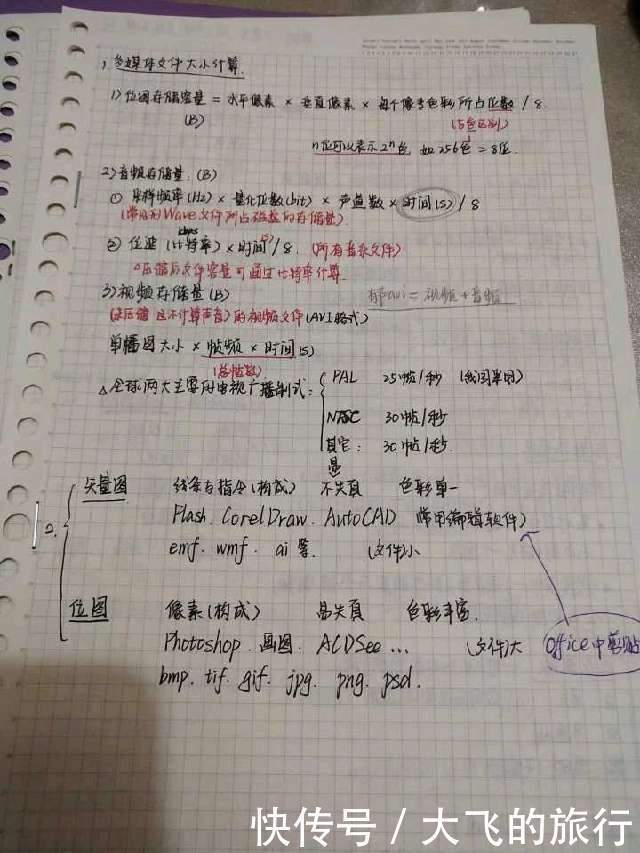 1, 多媒体文件大小计算.
1) 位图存储容量 = 水平像素 × 垂直像素 × 每个像素色彩所占位数 / 8
(B)
n位可以表示2ⁿ色 如256色 = 8位.
2) 音频存储量. (B)
① 采样频率(Hz) × 量化位数(bit) × 声道数 × 时间(S) / 8
(常见)Wave文件所占磁盘的存储量)
② 位速 (比特率) × 时间(S) / 8. (所有音乐文件)
压缩后文件容量可通过比特率计算.
3) 视频存储量 (B)
= 视频+音频
(未压缩且不计算声音)的视频文件(AVI格式)
单幅图大小 × 帧频 × 时间(S)
(总帧数)
△全球两大主要的电视广播制式:
PAL 25帧/秒 (我国单用)
NTSC 30帧/秒
其它: 30帧/秒
2.
矢量图 线条与指令(构成) 不失真 色彩单一
Flash. CorelDraw. AutoCAD (常用编辑软件)
emf. wmf. ai等. (文件)小
位图 像素(构成) 易失真 色彩丰富.
Photoshop. 画图. ACDSee ... (文件)大 Office中剪贴
bmp. tif. gif. jpg. png. psd.
快传号 / 大飞的旅行